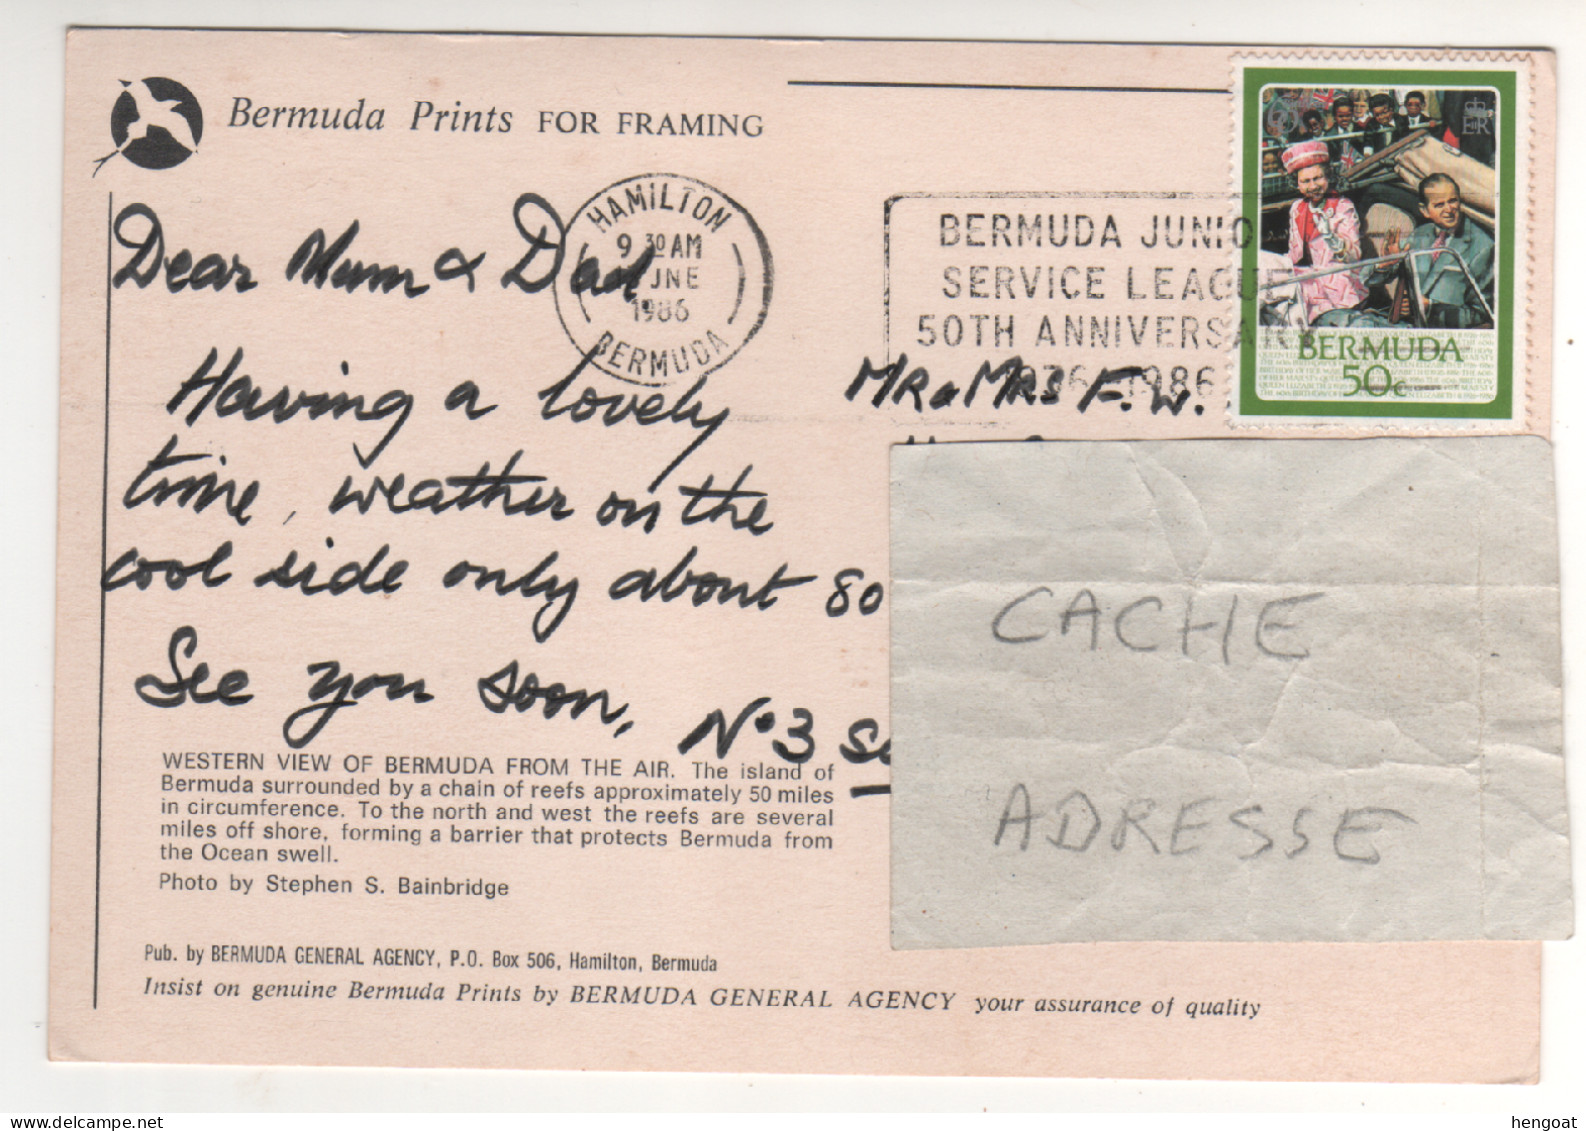 Bermuda Prints FOR FRAMING
HAMILTON
9 30 AM
JNE
1986
BERMUDA
BERMUDA JUNIO
SERVICE LEAGUE
50TH ANNIVERSARY
1986
EIIR
BERMUDA
50c
Dear Mum & Dad
Having a lovely
time, weather on the
cool side only about 80
See you soon,
MR & MRS F. W.
No 3
CACHE
ADRESSE
WESTERN VIEW OF BERMUDA FROM THE AIR. The island of
Bermuda surrounded by a chain of reefs approximately 50 miles
in circumference. To the north and west the reefs are several
miles off shore, forming a barrier that protects Bermuda from
the Ocean swell.
Photo by Stephen S. Bainbridge
Pub. by BERMUDA GENERAL AGENCY, P.O. Box 506, Hamilton, Bermuda
Insist on genuine Bermuda Prints by BERMUDA GENERAL AGENCY your assurance of quality
hengoat